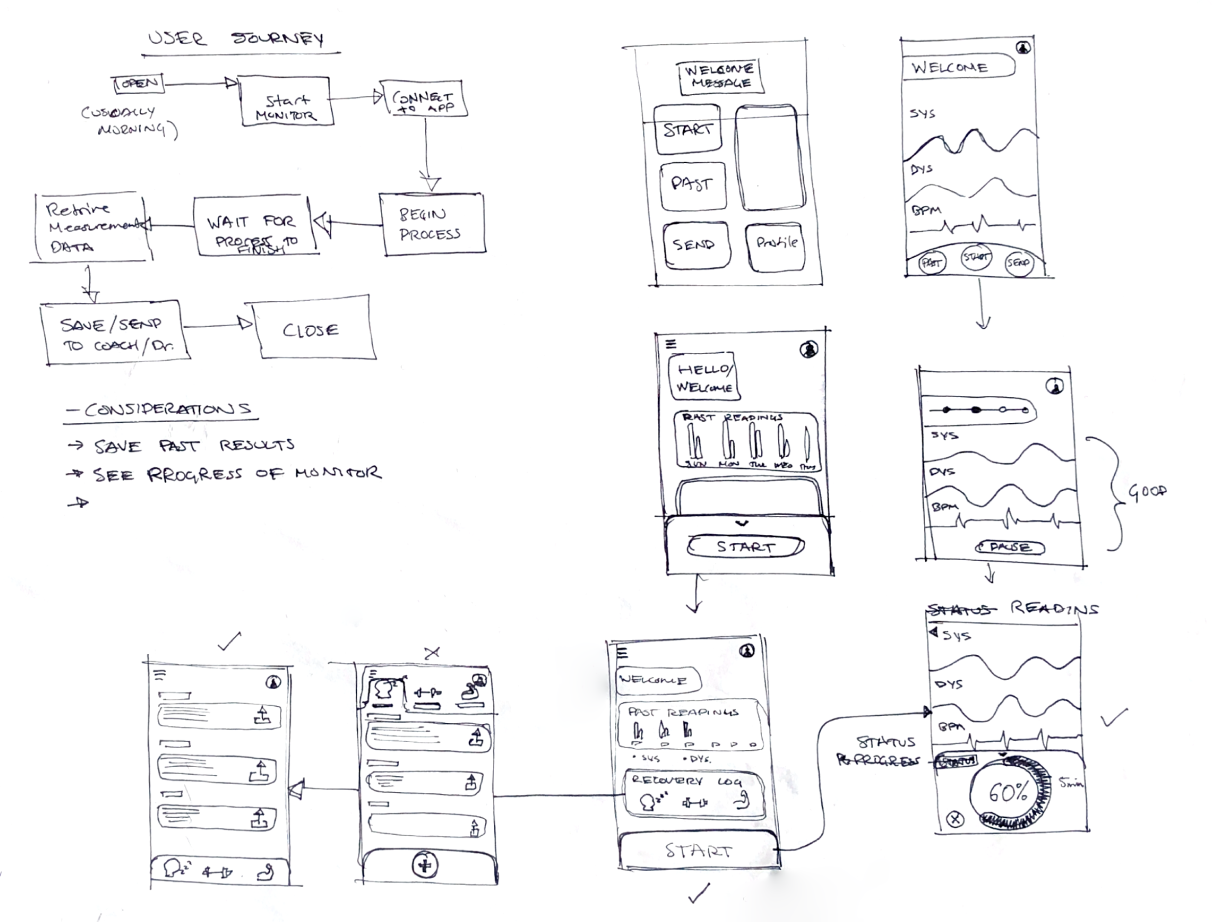 USER JOURNEY
OPEN
(USUALLY
MORNING)
Start
MONITOR
CONNECT
to APP
BEGIN
PROCESS
WAIT FOR
PROCESS TO
FINISH
Retrive
Measurement
DATA
SAVE/SEND
TO COACH/Dr.
CLOSE
- CONSIDERATIONS
→ SAVE PAST RESULTS
→ SEE PROGRESS OF MONITOR
→
WELCOME
MESSAGE
START
PAST
SEND
Profile
WELCOME
SYS
DYS
BPM
PAST
START
SEND
HELLO/
WELCOME
PAST READINGS
SUN MON TUE WED THUS
START
SYS
DYS
BPM
GOOD
PAUSE
WELCOME
PAST READINGS
• SYS • DYS.
RECOVERY LOG
START
STATUS READINS
SYS
DYS
BPM
STATUS
PROGRESS
STATUS
60%
5min